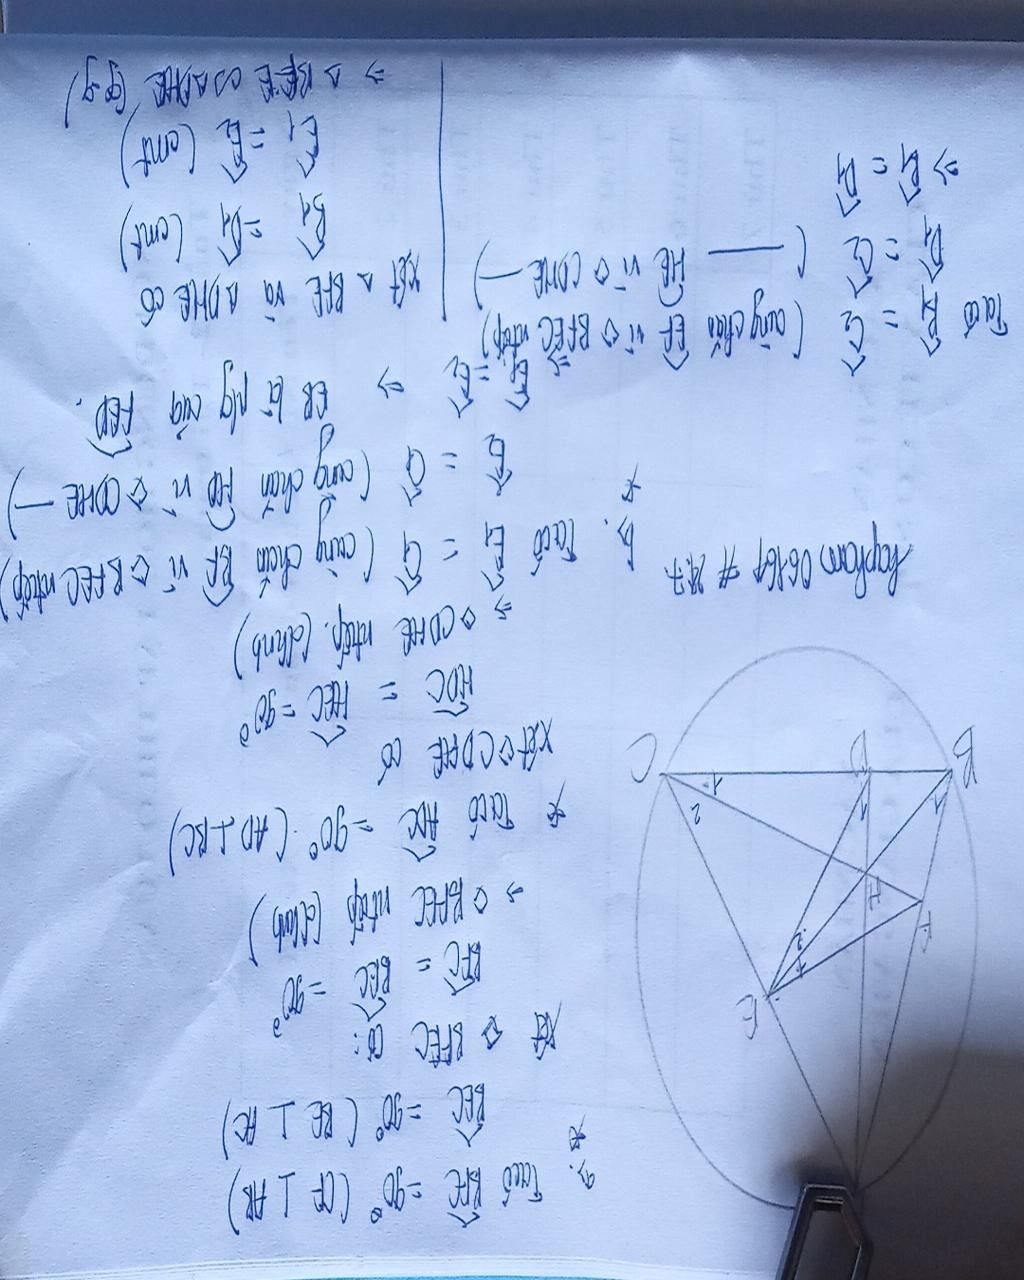 a.
* Ta có BFC = 90° (CF ⊥ AB)
BEC = 90° (BE ⊥ AC)
* Xét ◇ BFEC có:
BFC = BEC = 90°
⇒ ◇ BFEC ntiếp (đhnb)
* Ta có ADC = 90° (AD ⊥ BC)
Xét ◇ CDHE có
HDC = HEC = 90°
⇒ ◇ CDHE ntiếp. (đhnb)
b.
* Ta có E1 = C1 (cùng chắn BF vì ◇ BFEC ntiếp)
E2 = C1 (cùng chắn HD vì ◇ CDHE —)
⇒ E1 = E2 ⇒ EB là p/g của FED.
Ta có B1 = C2 (cùng chắn EF vì ◇ BFEC ntiếp)
D1 = C2 ( — HE vì ◇ CDHE —)
⇒ B1 = D1
Xét △ BFE và △ DHE có
B1 = D1 (cmt)
E1 = E2 (cmt)
⇒ △ BFE ∽ △ DHE (g.g)
A
E
F
H
B
D
C
1
2
1
1
1
2